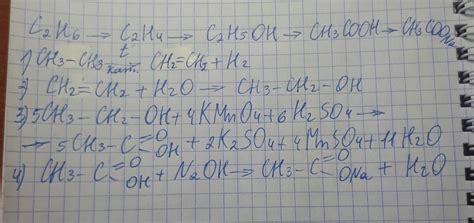 C2H6 → C2H4 → C2H5OH → CH3COOH → CH3COONa
1) CH3-CH3 t кат. CH2=CH2 + H2
2) CH2=CH2 + H2O → CH3-CH2-OH
3) 5CH3-CH2-OH + 4KMnO4 + 6H2SO4 →
→ 5CH3-C=O OH + 2K2SO4 + 4MnSO4 + 11H2O
4) CH3-C=O OH + NaOH → CH3-C=O ONa + H2O